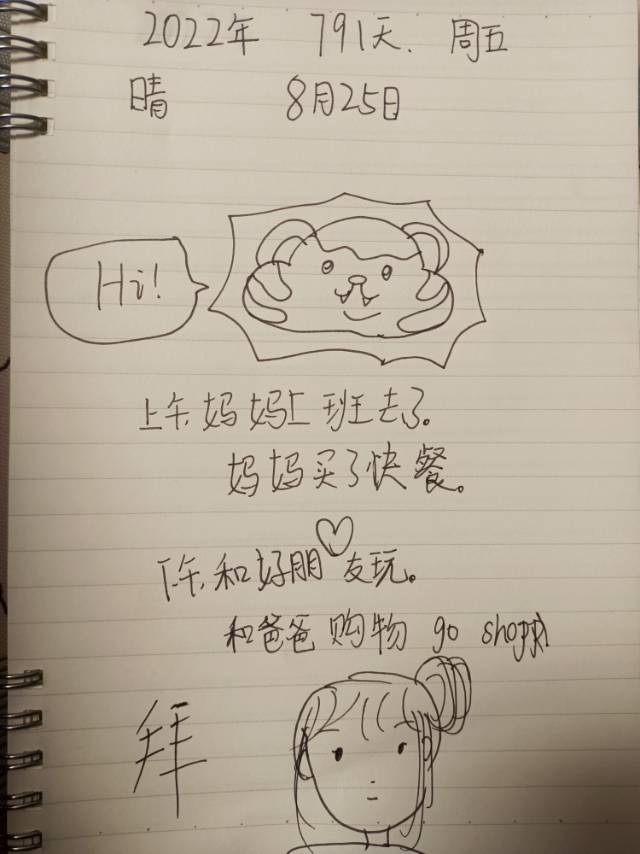 2022年 791天. 周五
晴 8月25日
Hi!
上午妈妈上班去了。
妈妈买了快餐。
下午和好朋友玩。
和爸爸购物 go shopp
拜